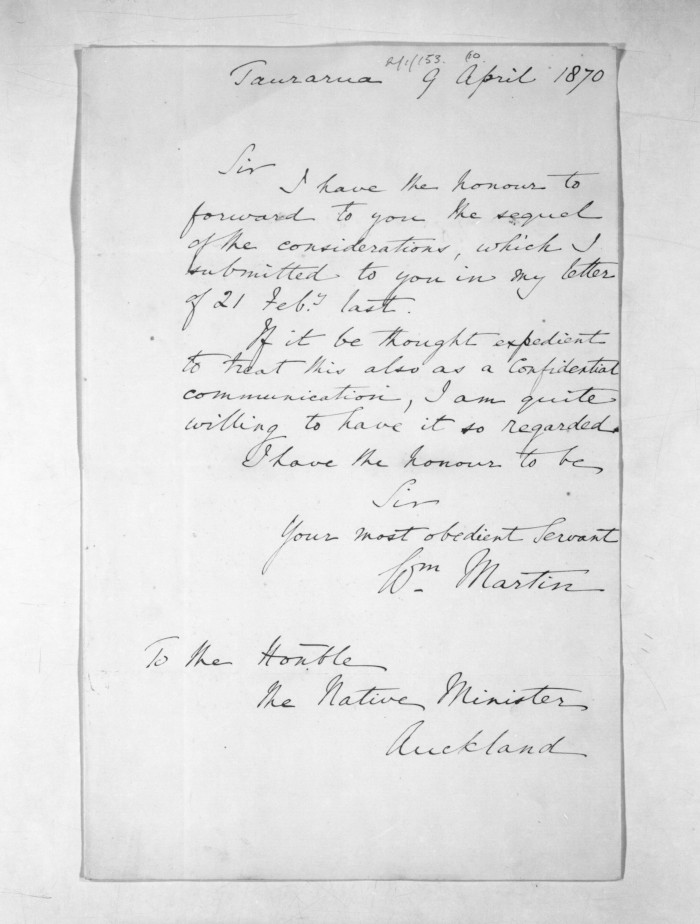 Taurarua 9 April 1870
Sir
I have the honour to
forward to you the sequel
of the considerations, which I
submitted to you in my letter
of 21 Feb.y last.
If it be thought expedient
to treat this also as a Confidential
communication, I am quite
willing to have it so regarded.
I have the honour to be
Sir
Your most obedient Servant
Wm Martin
To the Honble
the Native Minister
Auckland